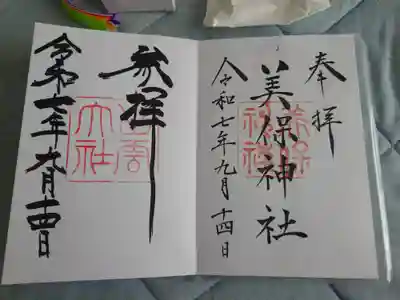 奉拝
美保神社
令和七年九月十四日
参拝
令和七年九月十四日
大社